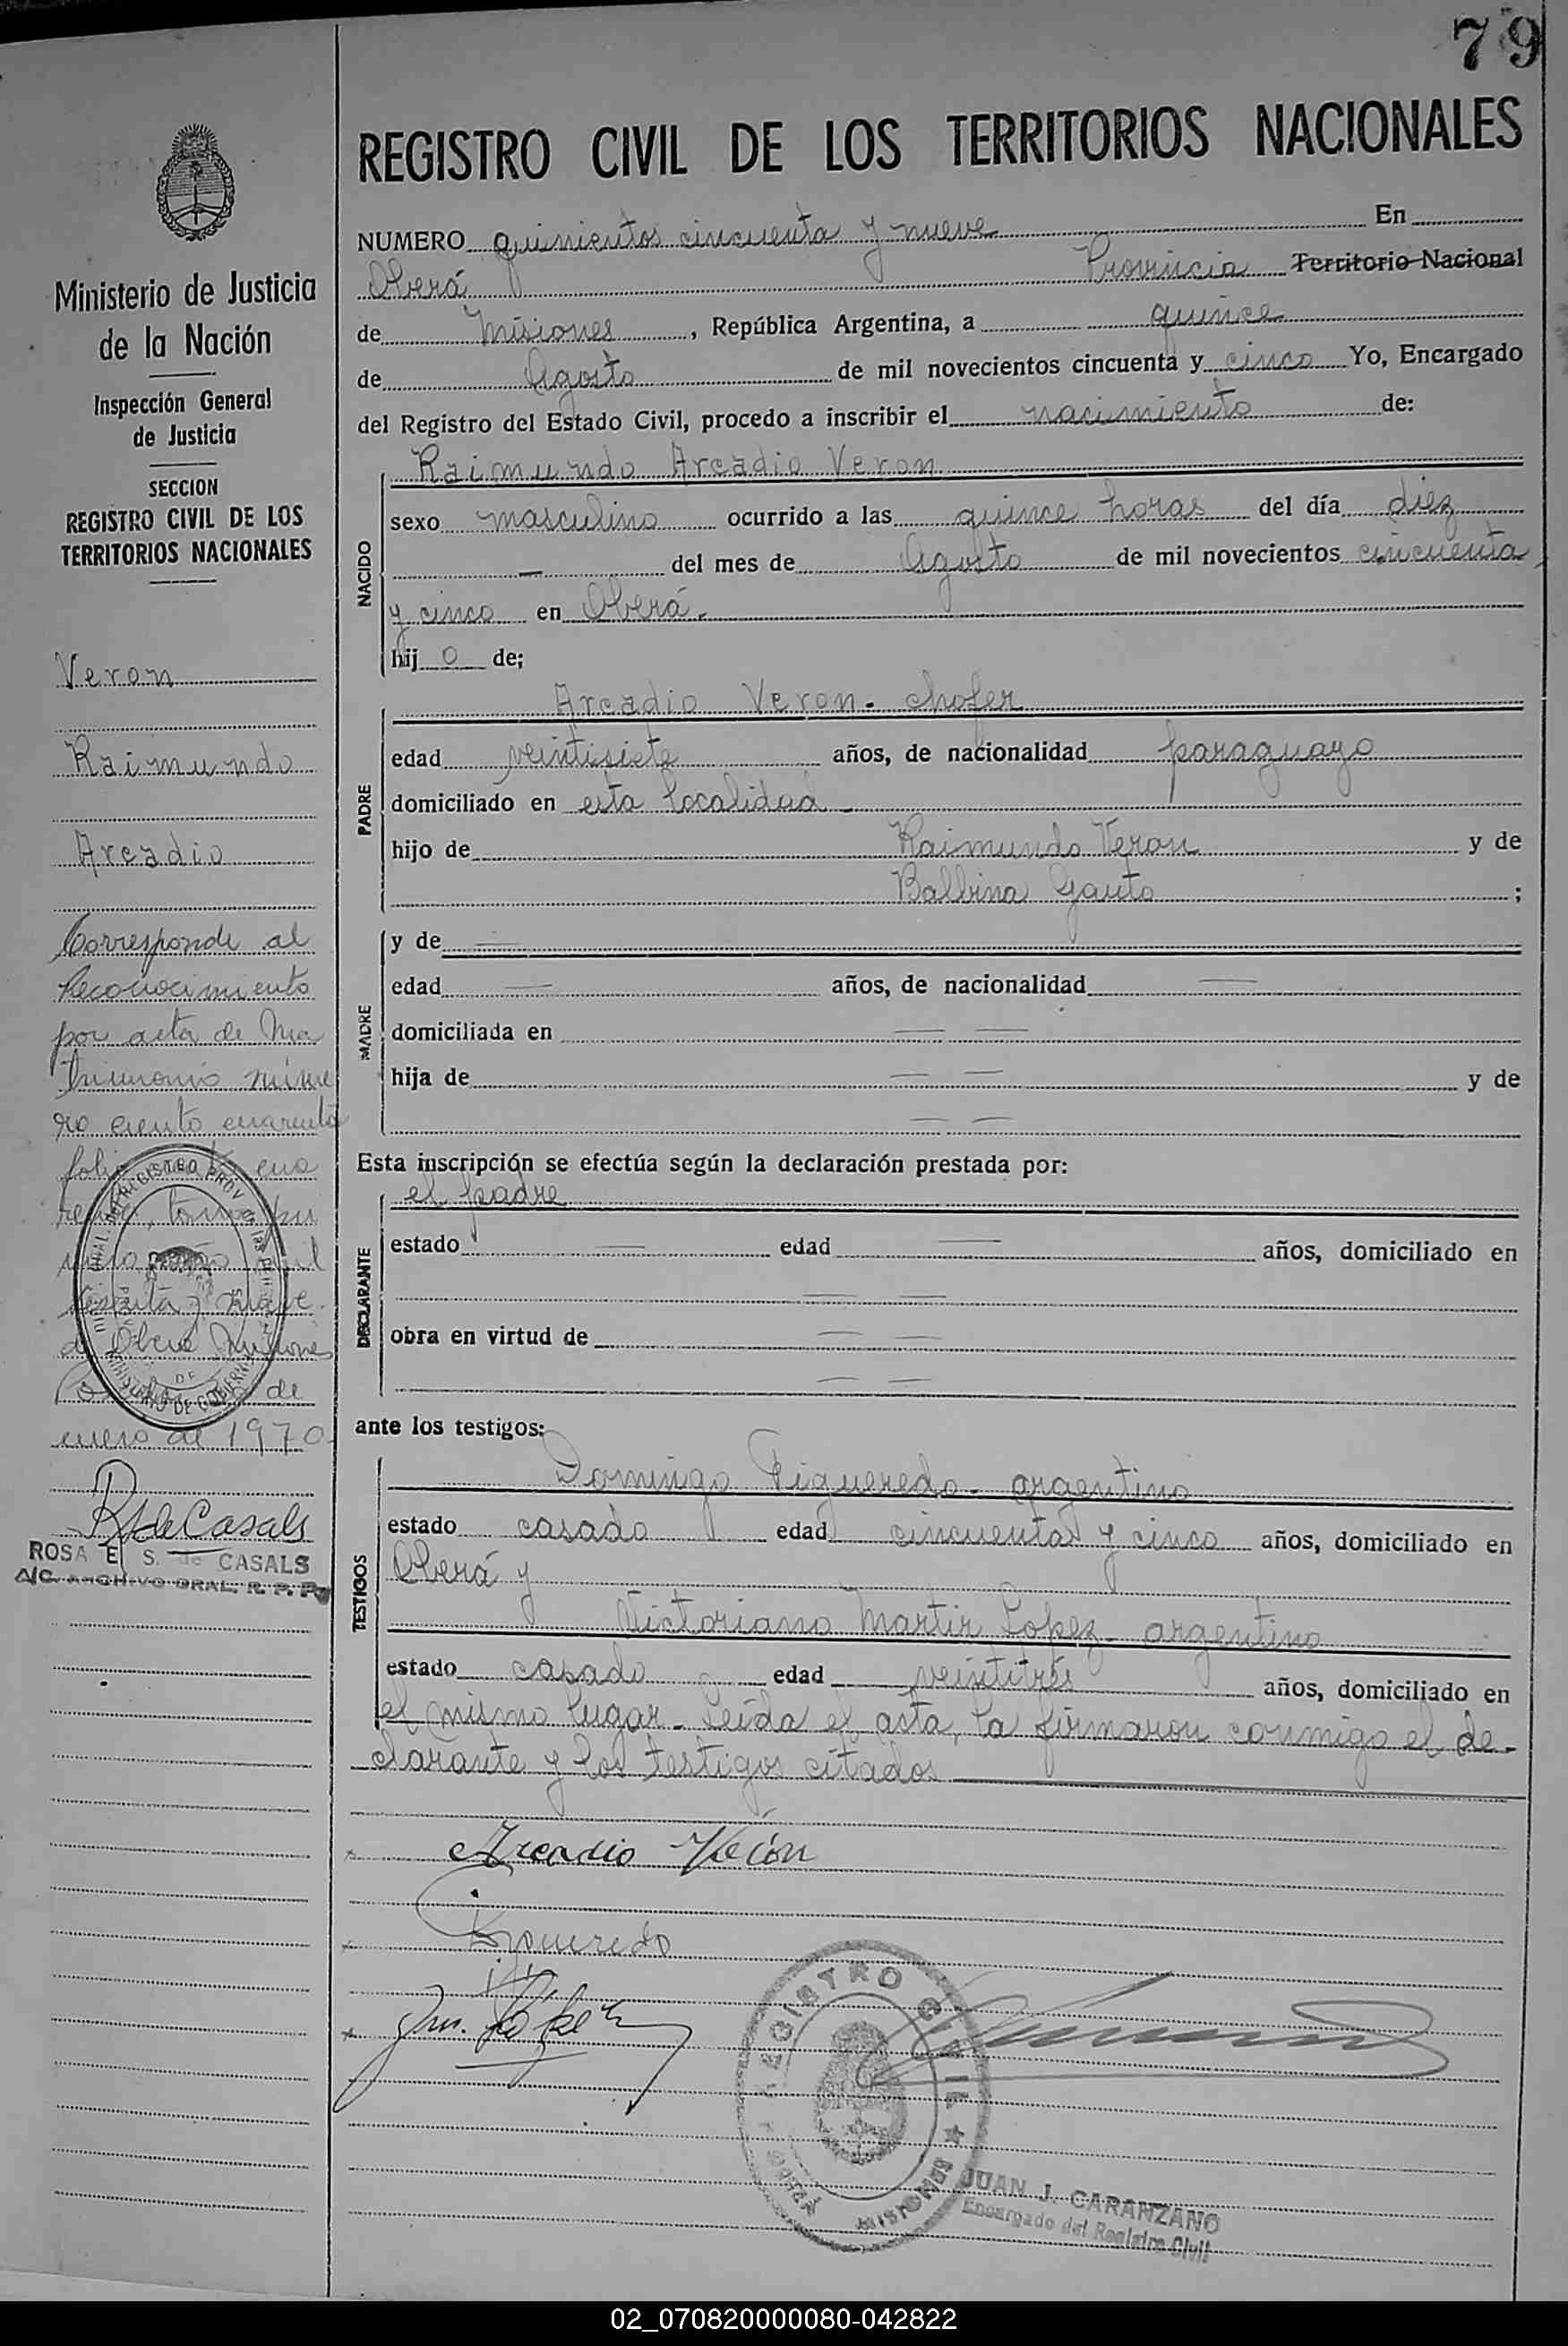 79
REGISTRO CIVIL DE LOS TERRITORIOS NACIONALES
NUMERO quinientos cincuenta y nueve En
Oberá Provincia Territorio Nacional
de Misiones, República Argentina, a quince
de Agosto de mil novecientos cincuenta y cinco Yo, Encargado
del Registro del Estado Civil, procedo a inscribir el nacimiento de:
NACIDO
Raimundo Arcadio Veron
sexo masculino ocurrido a las quince horas del día diez
— del mes de Agosto de mil novecientos cincuenta
y cinco en Oberá.
hijo de;
PADRE
Arcadio Veron - chofer
edad veintisiete años, de nacionalidad paraguayo
domiciliado en esta localidad
hijo de Raimundo Veron y de
Balbina Gauto ;
MADRE
y de —
edad — años, de nacionalidad —
domiciliada en — —
hija de — — y de
— —
Esta inscripción se efectúa según la declaración prestada por:
DECLARANTE
el padre
estado — edad — años, domiciliado en
— —
obra en virtud de — —
— —
ante los testigos:
TESTIGOS
Domingo Figueredo - argentino
estado casado edad cincuenta y cinco años, domiciliado en
Oberá y
Victoriano Martir Lopez - argentino
estado casado edad veintitrés años, domiciliado en
el mismo lugar - Leída el acta, la firmaron conmigo el de-
clarante y los testigos citados
Arcadio Verón
Figueredo
Lopez
REGISTRO CIVIL
OBERÁ MISIONES
JUAN J. CARANZANO
Encargado del Registro Civil
Ministerio de Justicia
de la Nación
Inspección General
de Justicia
SECCION
REGISTRO CIVIL DE LOS
TERRITORIOS NACIONALES
Veron
Raimundo
Arcadio
Corresponde al
Reconocimiento
por acta de Ma
trimonio núme
ro ciento cuarenta
folio cua
renta, tomo
mil
sesenta y nueve.
de Oberá Misiones
de
enero de 1970
R S de Casals
ROSA E. S. de CASALS
A/C. ARCHIVO GRAL. R. P. P.
02_070820000080-042822